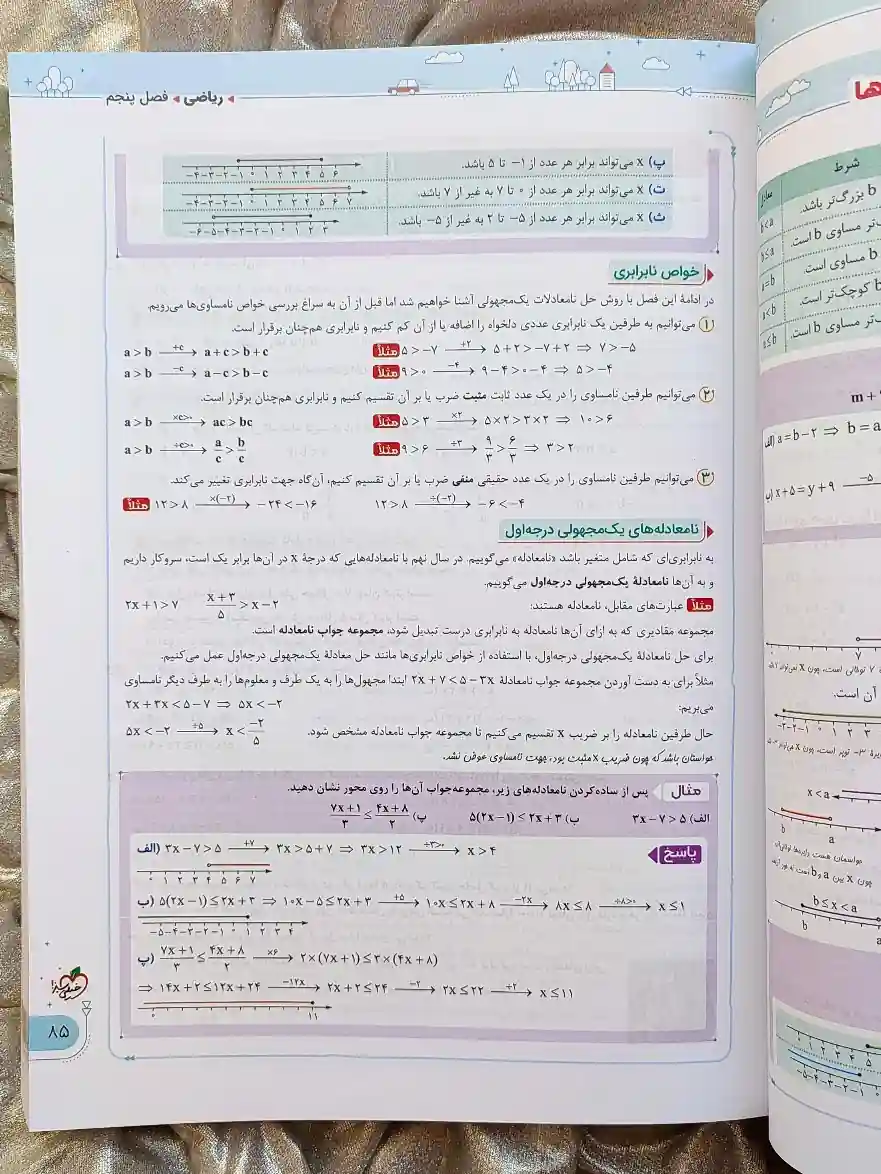 ریاضی ◂ فصل پنجم
پ) x می‌تواند برابر هر عدد از ۱− تا ۵ باشد.
−۴ −۳ −۲ −۱ ۰ ۱ ۲ ۳ ۴ ۵ ۶
ت) x می‌تواند برابر هر عدد از ۰ تا ۷ به غیر از ۷ باشد.
−۴ −۳ −۲ −۱ ۰ ۱ ۲ ۳ ۴ ۵ ۶ ۷
ث) x می‌تواند برابر هر عدد از ۵− تا ۲ به غیر از ۵− باشد.
−۶ −۵ −۴ −۳ −۲ −۱ ۰ ۱ ۲ ۳
خواص نابرابری
در ادامهٔ این فصل با روش حل نامعادلات یک‌مجهولی آشنا خواهیم شد اما قبل از آن به سراغ بررسی خواص نامساوی‌ها می‌رویم.
۱ می‌توانیم به طرفین یک نابرابری عددی دلخواه را اضافه یا از آن کم کنیم و نابرابری هم‌چنان برقرار است.
a > b —+c→ a+c > b+c مثلاً ۵ > −۷ —+۲→ ۵+۲ > −۷+۲ ⇒ ۷ > −۵
a > b —−c→ a−c > b−c مثلاً ۹ > ۰ —−۴→ ۹−۴ > ۰−۴ ⇒ ۵ > −۴
۲ می‌توانیم طرفین نامساوی را در یک عدد ثابت مثبت ضرب یا بر آن تقسیم کنیم و نابرابری هم‌چنان برقرار است.
a > b —×c>۰→ ac > bc مثلاً ۵ > ۳ —×۲→ ۵×۲ > ۳×۲ ⇒ ۱۰ > ۶
a > b —÷c>۰→ a/c > b/c مثلاً ۹ > ۶ —÷۳→ ۹/۳ > ۶/۳ ⇒ ۳ > ۲
۳ می‌توانیم طرفین نامساوی را در یک عدد حقیقی منفی ضرب یا بر آن تقسیم کنیم، آن‌گاه جهت نابرابری تغییر می‌کند.
مثلاً ۱۲ > ۸ —×(−۲)→ −۲۴ < −۱۶ ۱۲ > ۸ —÷(−۲)→ −۶ < −۴
نامعادله‌های یک‌مجهولی درجه‌اول
به نابرابری‌ای که شامل متغیر باشد «نامعادله» می‌گوییم. در سال نهم با نامعادله‌هایی که درجهٔ x در آن‌ها برابر یک است، سروکار داریم
و به آن‌ها نامعادلهٔ یک‌مجهولی درجه‌اول می‌گوییم.
مثلاً عبارت‌های مقابل، نامعادله هستند: ۲x+۱ > ۷ (x+۳)/۵ > x−۲
مجموعه مقادیری که به ازای آن‌ها نامعادله به نابرابری درست تبدیل شود، مجموعه جواب نامعادله است.
برای حل نامعادلهٔ یک‌مجهولی درجه‌اول، با استفاده از خواص نابرابری‌ها مانند حل معادلهٔ یک‌مجهولی درجه‌اول عمل می‌کنیم.
مثلاً برای به دست آوردن مجموعه جواب نامعادلهٔ ۲x+۷ < ۵−۳x ابتدا مجهول‌ها را به یک طرف و معلوم‌ها را به طرف دیگر نامساوی
می‌بریم: ۲x+۳x < ۵−۷ ⇒ ۵x < −۲
حال طرفین نامعادله را بر ضریب x تقسیم می‌کنیم تا مجموعه جواب نامعادله مشخص شود. ۵x < −۲ —÷۵→ x < −۲/۵
حواستان باشد که چون ضریب x مثبت بود، جهت نامساوی عوض نشد.
مثال پس از ساده‌کردن نامعادله‌های زیر، مجموعه‌جواب آن‌ها را روی محور نشان دهید.
الف) ۳x−۷ > ۵ ب) ۵(۲x−۱) ≤ ۲x+۳ پ) (۷x+۱)/۳ ≤ (۴x+۸)/۲
پاسخ
الف) ۳x−۷ > ۵ —+۷→ ۳x > ۵+۷ ⇒ ۳x > ۱۲ —÷۳>۰→ x > ۴
۰ ۱ ۲ ۳ ۴ ۵ ۶ ۷
ب) ۵(۲x−۱) ≤ ۲x+۳ ⇒ ۱۰x−۵ ≤ ۲x+۳ —+۵→ ۱۰x ≤ ۲x+۸ —−۲x→ ۸x ≤ ۸ —÷۸>۰→ x ≤ ۱
−۵ −۴ −۳ −۲ −۱ ۰ ۱ ۲ ۳ ۴
پ) (۷x+۱)/۳ ≤ (۴x+۸)/۲ —×۶→ ۲×(۷x+۱) ≤ ۳×(۴x+۸)
⇒ ۱۴x+۲ ≤ ۱۲x+۲۴ —−۱۲x→ ۲x+۲ ≤ ۲۴ —−۲→ ۲x ≤ ۲۲ —÷۲→ x ≤ ۱۱
۰ ۱۱
خیلی سبز
۸۵
ها
شرط
b بزرگ‌تر باشد.
b < a
مساوی b است.
b ≤ a
b مساوی است
a = b
b کوچک‌تر است.
a < b
تر مساوی b است.
a ≤ b
الف) a=b−۲ ⇒ b=a
ب) x+۵=y+۹ —−۵
۷
آن است.
−۳ −۲ −۱ ۰ ۱ ۲ ۳
x < a
a
b
a
b ≤ x < a
b
a
۰ ۱ ۲ ۳ ۴ ۵
−۵ −۴ −۳ −۲ −۱ ۰